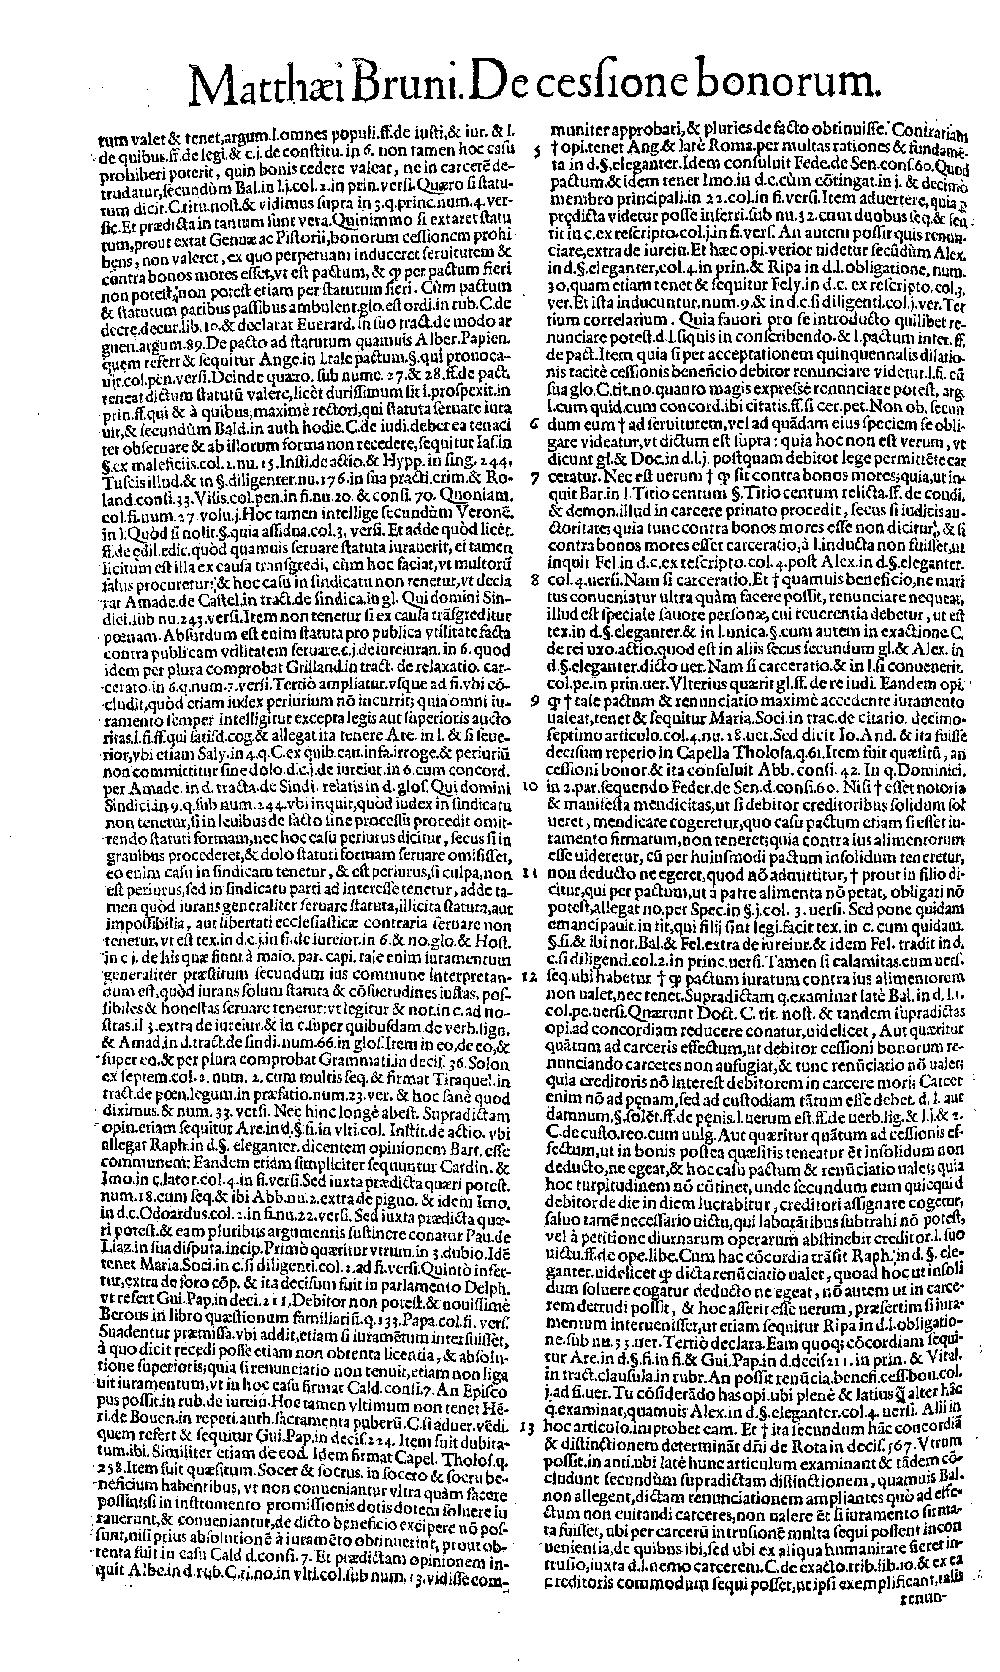 Matthæi Bruni. De cessione bonorum.
tum valet & tenet, argum. l. omnes populi. ff. de iusti, & iur. & l.
de quibus. ff. de legi. & c. j. de constitu. in 6. non tamen hoc casu
prohiberi poterit, quin bonis cedere valeat, ne in carcerē de-
trudatur, secundùm Bal. in l. j. col. 2. in prin. versi. Quæro si statu-
tum dicit. C. titu. nost. & vidimus supra in 3. q. princ. num. 4. ver-
sic. Et prædicta in tantum sunt vera. Quinimmo si extaret statu
tum, prout extat Genuæ ac Pistorij, bonorum cessionem prohi
bens, non valeret, ex quo perpetuam induceret seruitutem &
cōtra bonos mores esset, vt est pactum, & ꝙ per pactum fieri
non potest, non potest etiam per statutum fieri. Cùm pactum
& statutum paribus passibus ambulent. glo. est ordi. in rub. C. de
decre. decur. lib. 10. & declarat Euerard. in suo tract. de modo ar
guen. argum. 89. De pacto ad statutum quamuis Alber. Papien.
quem refert & sequitur Ange. in l. tale pactum. §. qui prouoca-
uit. col. pen. versi. Deinde quæro. sub nume. 27. & 28. ff. de pact.
teneat dictum statutū valere, licèt durissimum sit l. prospexit. in
prin. ff. qui & à quibus, maximè rectori, qui statuta seruare iura
uit, & secundùm Bald. in auth. hodie. C. de iudi. debet ea tenaci
ter obseruare & ab illorum forma non recedere, sequitur Ias. in
§. ex maleficiis. col. 2. nu. 15. Insti. de actio. & Hypp. in sing. 244.
Tuscis illud. & in §. diligenter. nu. 176. in sua practi. crim. & Ro-
land. consi. 33. Visis. col. pen. in fi. nu. 20. & consi. 70. Quoniam.
col. fi. num. 27. volu. j. Hoc tamen intellige secundùm Veronē.
in l. Quòd si nolit. §. quia assidua. col. 3. versi. Et adde quòd licèt.
ff. de edil. edic. quòd quamuis seruare statuta iurauerit, ei tamen
licitum est illa ex causa transgredi, cùm hoc faciat, vt multorū
salus procuretur; & hoc casu in sindicatu non renetur, vt decla
rat Amade. de Castel. in tract. de sindica. in gl. Qui domini Sin-
dici. sub nu. 243. versi. Item non tenetur si ex causa trāsgreditur
pœnam. Absurdum est enim statuta pro publica vtilitate facta
contra publicam vtilitatem seruare. c. j. de iureiuran. in 6. quod
idem per plura comprobat Grilland. in tract. de relaxatio. car-
cerato. in 6. q. num. 7. versi. Tertiò ampliatur. vsque ad fi. vbi cō-
cludit, quòd etiam iudex periurium nō incurrit; quia omni iu-
ramento semper intelligitur excepta legis aut superioris aucto
ritas. l. fi. ff. qui satisd. cog. & allegat ita tenere Are. in l. & si seue-
rior, vbi etiam Saly. in 4. q. C. ex quib. cau. infa. irroge. & periuriū
non committitur sine dolo. d. c. j. de iureiur. in 6. cum concord.
per Amade. in d. tracta. de Sindi. relatis in d. glos. Qui domini
Sindici. in 9. q. sub num. 244. vbi inquit, quòd iudex in sindicatu
non tenetur, si in leuibus de facto sine processu procedit omit-
tendo statuti formam, nec hoc casu periurus dicitur, secus si in
grauibus procederet, & dolo statuti formam seruare omisisset,
eo enim casu in sindicatu tenetur, & est periurus, si culpa, non
est periurus, sed in sindicatu parti ad interesse tenetur, adde ta-
men quòd iurans generaliter seruare statuta, illicita statuta, aut
impossibilia, aut libertati ecclesiasticæ contraria seruare non
tenetur, vt est tex. in d. c. j. in fi. de iureiur. in 6. & no. glo. & Host.
in c. j. de his quæ fiunt à maio. par. capi. tale enim iuramentum
generaliter præstitum secundum ius commune interpretan-
dum est, quòd iurans solum statuta & cōsuetudines iustas, pos-
sibiles & honestas seruare tenetur: vt legitur & not. in c. ad no-
stras. il 3. extra de iureiur. & in c. super quibusdam. de verb. sign.
& Amad. in d. tract. de sindi. num. 66. in glos. Item in eo, de eo, &
super eo. & per plura comprobat Grammati. in decis. 36. Solon
ex septem. col. 2. num. 2. cum multis seq. & firmat Tiraquel. in
tract. de pœn. legum. in præfatio. num. 23. ver. & hoc sanè quod
diximus. & num. 33. versi. Nec hinc longè abest. Supradictam
opin. etiam sequitur Are. in d. §. fi. in vlti. col. Instit. de actio. vbi
allegat Raph. in d. §. eleganter. dicentem opinionem Bart. esse
communem: Eandem etiam simpliciter sequuntur Cardin. &
Imo. in c. lator. col. 4. in fi. versi. Sed iuxta prædicta quæri potest.
num. 18. cum seq. & ibi Abb. nu. 2. extra de pigno. & idem Imo.
in d. c. Odoardus. col. 2. in fi. nu. 22. versi. Sed iuxta prædicta quæ-
ri potest. & eam pluribus argumentis sustinere conatur Pau. de
Liaz. in sua disputa. incip. Primò quæritur vtrum. in 3. dubio. Idē
tenet Maria. Soci. in c. si diligenti. col. 2. ad fi. versi. Quintò infer-
tur, extra de foro cōp. & ita decisum fuit in parlamento Delph.
vt refert Gui. Pap. in deci. 211. Debitor non potest. & nouissimè
Berous in libro quæstionum familiari si. q. 133. Papa. col. fi. versi.
Suadentur præmissa. vbi addit, etiam si iuramētum interfuisset,
à quo dicit recedi posse etiam non obtenta licentia, & absolu-
tione superioris; quia si renunciatio non tenuit, etiam non liga
uit iuramentum, vt in hoc casu firmat Cald. consi. 7. An Episco
pus possit. in rub. de iureiu. Hoc tamen vltimum non tenet Hē-
ri. de Bouen. in repeti. auth. sacramenta puberū. C. si aduer. vēdi.
quem refert & sequitur Gui. Pap. in decis. 224. Item fuit dubita-
tum. ibi. Similiter etiam de eod. Idem firmat Capel. Tholos. q.
258. Item fuit quæsitum. Socer & socrus. in socero & socru be-
neficium habentibus, vt non conueniantur vltra quàm facere
possint; si in instrumento promissionis dotis dotem soluere iu
rauerunt, & conueniantur, de dicto beneficio excipere nō pos-
sunt, nisi prius absolutionē à iuramēto obtinuerint, prout ob-
tenta fuit in casu Cald. d. consi. 7. Et prædictam opinionem in-
quit Albe. in d. rub. C. ti. no. in vlti. col. sub num. 13. vidisse com-
muniter approbari, & pluries de facto obtinuisse. Contrariam
5 † opi. tenet Ang. & latè Roma. per multas rationes & fundamē-
ta in d. §. eleganter. Idem consuluit Fede. de Sen. consi. 60. Quod
pactum. & idem tenet Imo. in d. c. cùm cōtingat. in j. & decimo
membro principali. in 22. col. in fi. versi. Item aduertere, quia ꝫ
prędicta videtur posse inferri. sub nu. 32. cum duobus seq. & sen
tit in c. ex rescripto. col. j. in fi. versi. An autem possit quis renun-
ciare, extra de iureiu. Et hæc opi. verior uidetur secūdùm Alex.
in d. §. eleganter, col. 4. in prin. & Ripa in d. l. obligatione, num.
30. quam etiam tenet & sequitur Fely. in d. c. ex rescripto. col. 3.
ver. Et ista inducuntur. num. 9. & in d. c. si diligenti. col. j. ver. Ter
tium correlarium. Quia fauori pro se introducto quilibet re-
nunciare potest. d. l. si quis in conscribendo. & l. pactum inter. ff.
de pact. Item quia si per acceptationem quinquennalis dilatio-
nis tacitè cessionis beneficio debitor renunciare videtur. l. fi. cū
sua glo. C. tit. no. quanto magis expressè renunciare potest, arg.
l. cum quid. cum concord. ibi citatis. ff. si cer. pet. Non ob. secun
6 dum eum † ad seruitutem, vel ad quādam eius speciem se obli-
gare videatur, vt dictum est supra: quia hoc non est verum, vt
dicunt gl. & Doc. in d. l. j. postquam debitor lege permittēte car
7 ceratur. Nec est uerum † ꝙ sit contra bonos mores; quia, ut in-
quit Bar. in l. Titio centum §. Titio centum relicta. ff. de condi.
& demon. illud in carcere priuato procedit, secus si iudicis au-
ctoritate; quia tunc contra bonos mores esse non dicitur, & si
contra bonos mores esset carceratio, à l. inducta non fuisset, ut
inquit Fel. in d. c. ex rescripto. col. 4. post Alex. in d. §. eleganter.
8 col. 4. uersi. Nam si carceratio. Et † quamuis beneficio, ne mari
tus conueniatur ultra quàm facere possit, renunciare nequeat,
illud est speciale fauore personæ, cui reuerentia debetur, ut est
tex. in d. §. eleganter. & in l. unica. §. cum autem in exactione. C.
de rei uxo. actio. quod est in aliis secus secundum gl. & Alex. in
d. §. eleganter. dicto uer. Nam si carceratio. & in l. si conuenerit.
col. pe. in prin. uer. Vlterius quærit gl. ff. de re iudi. Eandem opi.
9 ꝙ † tale pactum & renunciatio maximè accedente iuramento
ualeat, tenet & sequitur Maria. Soci. in trac. de citatio. decimo-
septimo articulo. col. 4. nu. 18. uer. Sed dicit Io. And. & ita fuisse
decisum reperio in Capella Tholosa. q. 61. Item fuit quæsitū, an
cessioni bonor. & ita consuluit Abb. consi. 42. In q. Dominici.
10 in 2. par. sequendo Feder. de Sen. d. consi. 60. Nisi † esset notoria
& manifesta mendicitas, ut si debitor creditoribus solidum sol
ueret, mendicare cogeretur, quo casu pactum etiam si esset iu-
ramento firmatum, non teneret; quia contra ius alimentorum
esse uideretur, cū per huiusmodi pactum insolidum teneretur,
11 non deducto ne egeret, quod nō admittitur, † prout in filio di-
citur, qui per pactum, ut à patre alimenta nō petat, obligari nō
potest, allegat no. per Spec. in §. j. col. 3. uersi. Sed pone quidam
emancipauit. in tit. qui filij sint legi. facit tex. in c. cum quidam.
§. fi. & ibi not. Bal. & Fel. extra de iureiur. & idem Fel. tradit in d.
c. si diligend. col. 2. in princ. uersi. Tamen si calamitas. cum uers.
12 seq. ubi habetur † ꝙ pactum iuratum contra ius alimentorum
non ualet, nec tenet. Supradictam q. examinat latè Bal. in d. l. 1.
col. pe. uersi. Quærunt Doct. C. tit. nost. & tandem supradictas
opi. ad concordiam reducere conatur, uidelicet, Aut quæritur
quātum ad carceris effectum, ut debitor cessioni bonorum re-
nunciando carceres non aufugiat, & tunc renūciatio nō ualet;
quia creditoris nō interest debitorem in carcere mori; Carcer
enim nō ad pęnam, sed ad custodiam tātum esse debet. d. l. aut
damnum, §. solēt. ff. de pęnis. l. uerum est. ff. de uerb. lig. & l. j. & 2.
C. de custo. reo. cum uulg. Aut quæritur quātum ad cessionis ef-
fectum, ut in bonis postea quæsitis teneatur ēt insolidum non
deducto, ne egeat, & hoc casu pactum & renūciatio ualet; quia
hoc turpitudinem nō cōtinet, unde secundum eum quicquid
debitor de die in diem lucrabitur, creditori assignare cogetur,
saluo tamē necessario uictu, qui laborātibus subtrahi nō potest,
vel à petitione diurnarum operarum abstinebit creditor. l. suo
uictu. ff. de ope. libe. Cum hac cōcordia trāsit Raph. in d. §. ele-
ganter. uidelicet ꝙ dicta renūciatio ualet, quoad hoc ut insoli
dum soluere cogatur deducto ne egeat, nō autem ut in carce-
rem detrudi possit, & hoc asserit esse uerum, præsertim si iura-
mentum interuenisset, ut etiam sequitur Ripa in d. l. obligatio-
ne. sub nu. 33. uer. Tertiò declara. Eam quoq; cōcordiam sequi-
tur Are. in d. §. fi. in fi. & Gui. Pap. in d. decis 211. in prin. & Vital.
in tract. clausula. in rubr. An possit renūcia. benefi. cess. bou. col.
j. ad fi. uer. Tu cōsiderādo has opi. ubi plenè & latius q̄ alter hāc
q. examinat, quamuis Alex. in d. §. eleganter. col. 4. uersi. Alii in
13 hoc articulo. improbet eam. Et † ita secundum hāc concordiā
& distinctionem determināt dñi de Rota in decis. 567. Vtrum
possit. in anti. ubi latè hunc articulum examinant & tādem cō-
cludunt secundùm supradictam distinctionem, quamuis Bal.
non allegent, dictam renunciationem ampliantes quò ad effe-
ctum non euitandi carceres, non ualere ēt si iuramento firma-
ta fuisset, ubi per carcerū intrusionē multa sequi possent incon
uenientia, de quibus ibi, sed ubi ex aliqua humanitate fieret in-
trusio, iuxta d. l. nemo carcerem. C. de exacto. trib. lib. 10. & ex ea
creditoris commodum sequi posset, ut ipsi exemplificant, talis
renun-